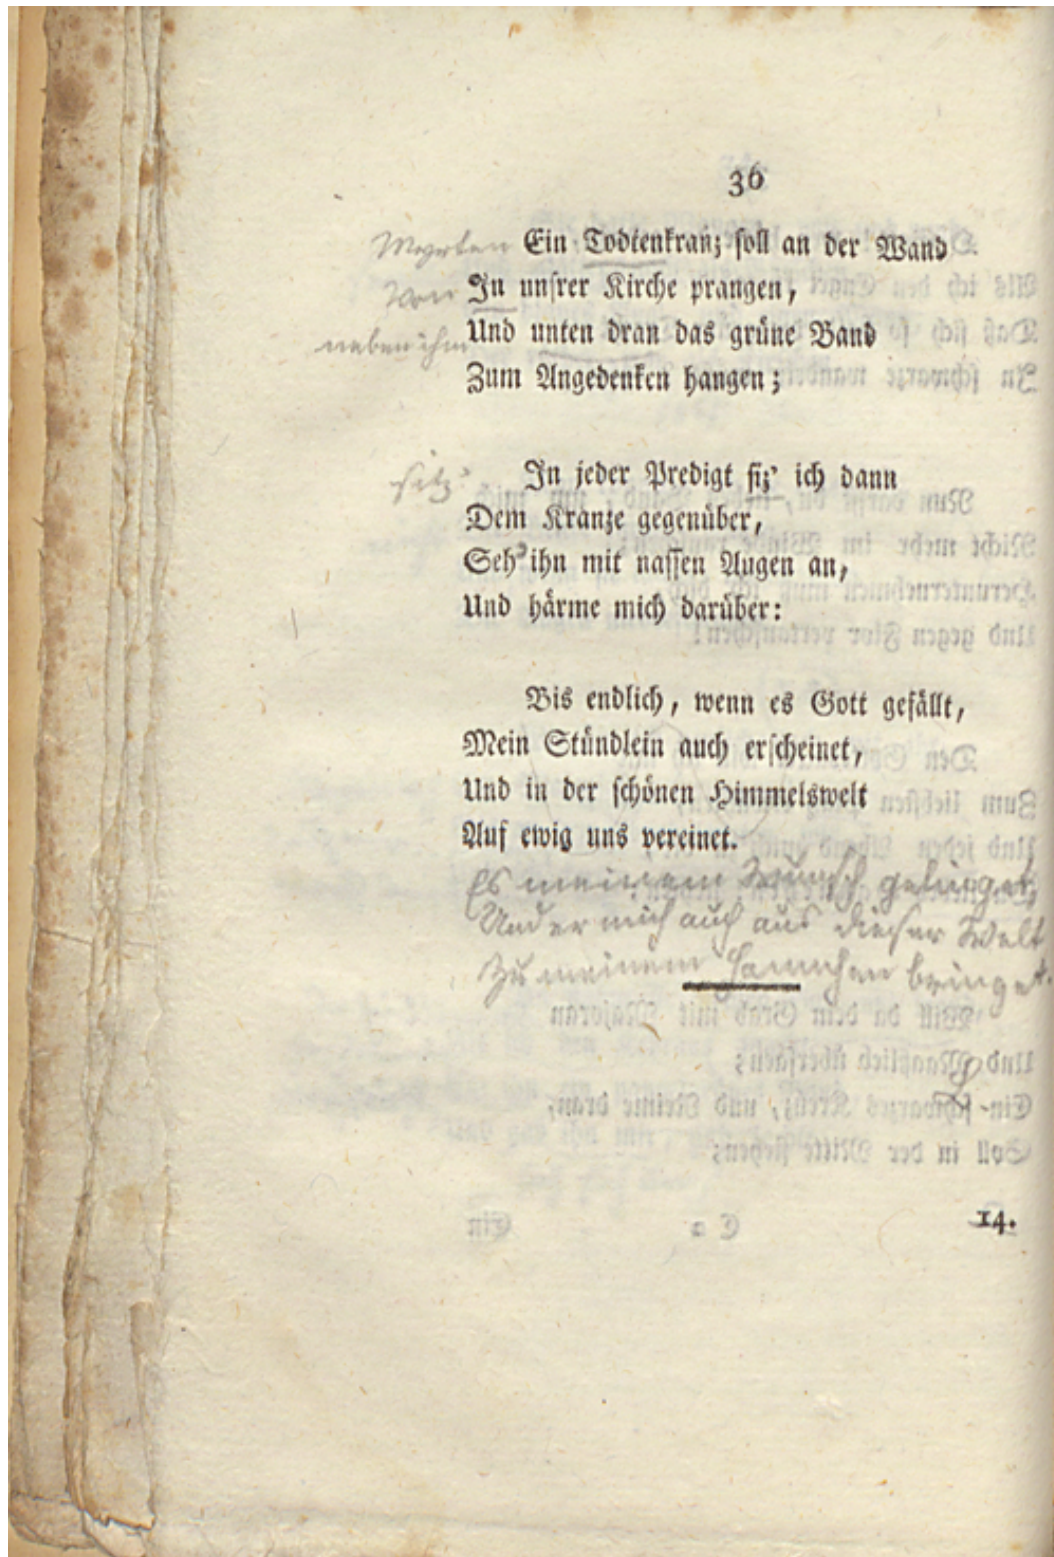 36
Myrten Ein Todtenkranz soll an der Wand
Von In unsrer Kirche prangen,
neben ihm Und unten dran das grüne Band
Zum Angedenken hangen;
sitz' In jeder Predigt siz' ich dann
Dem Kranze gegenüber,
Seh' ihn mit nassen Augen an,
Und härme mich darüber:
Bis endlich, wenn es Gott gefällt,
Mein Stündlein auch erscheinet,
Und in der schönen Himmelswelt
Auf ewig uns vereinet.
Es meinem Wunsch gelinget,
Und er mich auch aus dieser Welt
Zu meinem Hannchen bringet.
14.